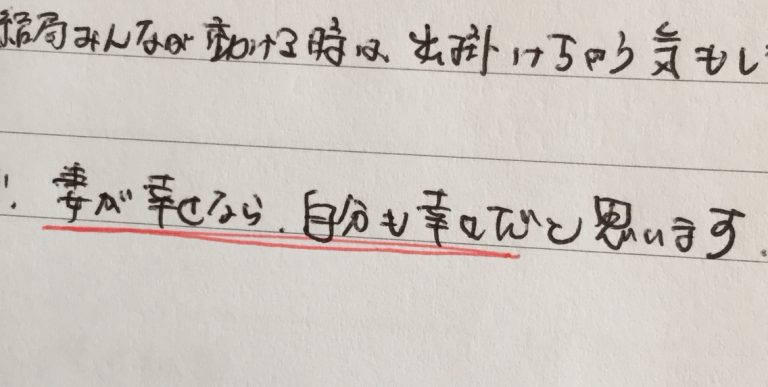 結局みんなが動ける時は、出掛けちゃう気もし
妻が幸せなら、自分も幸せだと思います。